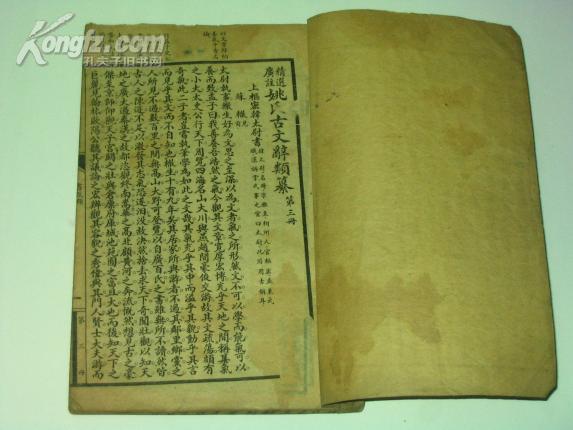 Kongfz.com
孔夫子旧书网
精選
廣註
姚氏古文辭類纂
第三冊
上樞密韓太尉書
蘇轍
太尉執事轍生好為文思之至深以為文者氣之所形然文不可以學而能氣可以
養而致孟子曰我善養吾浩然之氣今觀其文章寬厚宏博充乎天地之間稱其氣
之小大太史公行天下周覽四海名山大川與燕趙間豪俊交游故其文疏蕩頗有
奇氣此二子者豈嘗執筆學為如此之文哉其氣充乎其中而溢乎其貌動乎其言
而見乎其文而不自知也轍生十有九年矣其居家所與游者不過其鄰里鄉黨之
人所見不過數百里之間無高山大野可登覽以自廣百氏之書雖無所不讀然皆
古人之陳迹不足以激發其志氣恐遂汩沒故決然捨去求天下奇聞壯觀以知天
地之廣大過秦漢之故都恣觀終南嵩華之高北顧黃河之奔流慨然想見古之豪
傑至京師仰觀天子宮闕之壯與倉廩府庫城池苑囿之富且大也而後知天下之
巨麗見翰林歐陽公聽其議論之宏辯觀其容貌之秀偉與其門人賢士大夫游而
第三冊